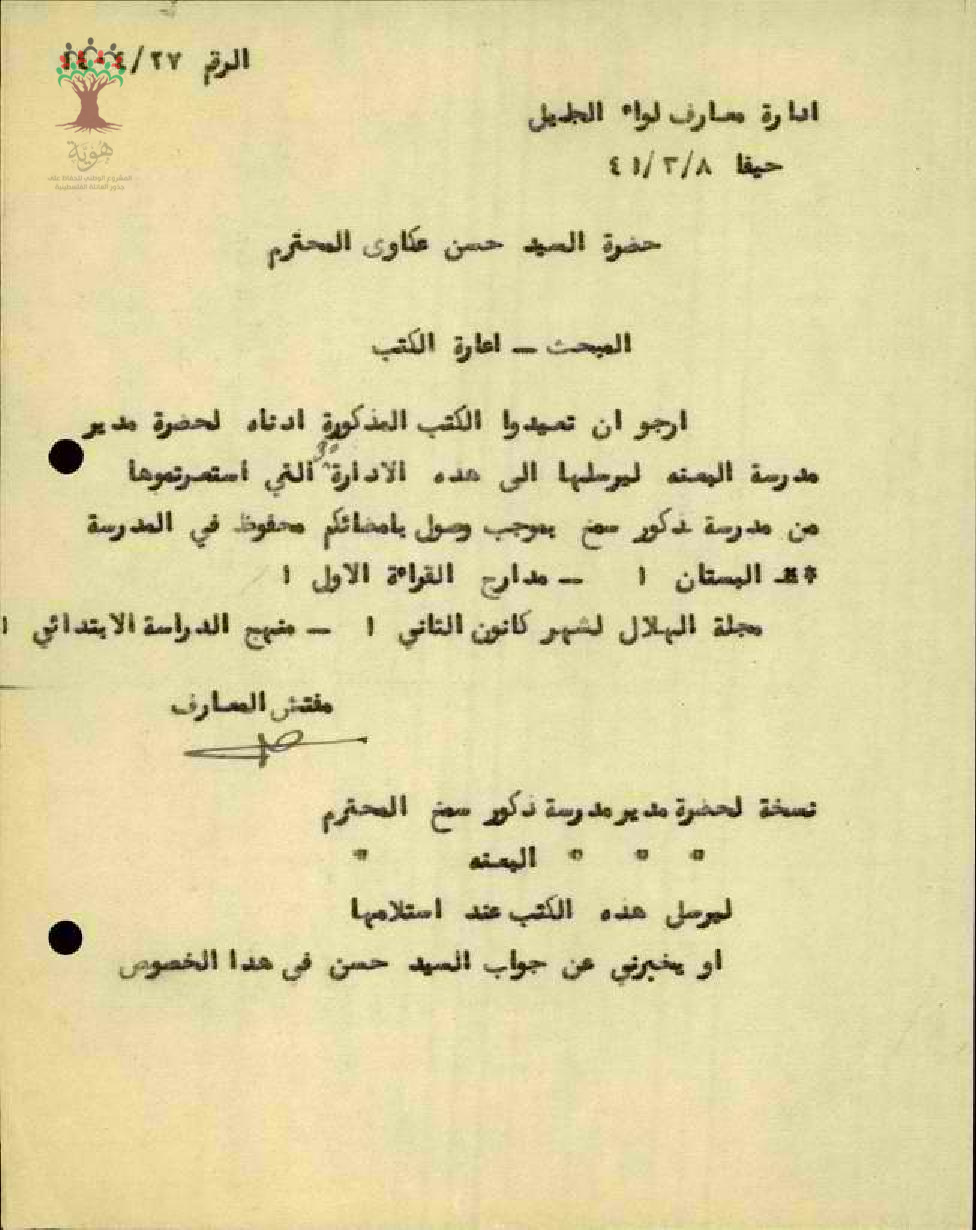 الرقم ٢٧/١٤٠٤
ادارة معارف لواء الجليل
حيفا ٤١/٣/٨
حضرة السيد حسن عكاوى المحترم
المبحث ــ اعارة الكتب
ارجو ان تعيدوا الكتب المذكورة ادناه لحضرة مدير
مدرسة البعنه ليرسلها الى هذه الادارة التي استعرتموها
من مدرسة ذكور سمخ بموجب وصول بامضائكم محفوظ في المدرسة
البستان ١ ــ مدارج القراءة الاول ١
مجلة الهلال لشهر كانون الثاني ١ ــ منهج الدراسة الابتدائي ١
مفتش المعارف
نسخة لحضرة مدير مدرسة ذكور سمخ المحترم
" " " البعنه "
ليرسل هذه الكتب عند استلامها
او يخبرني عن جواب السيد حسن في هذا الخصوص
هوية
المشروع الوطني للحفاظ على
جذور العائلة الفلسطينية